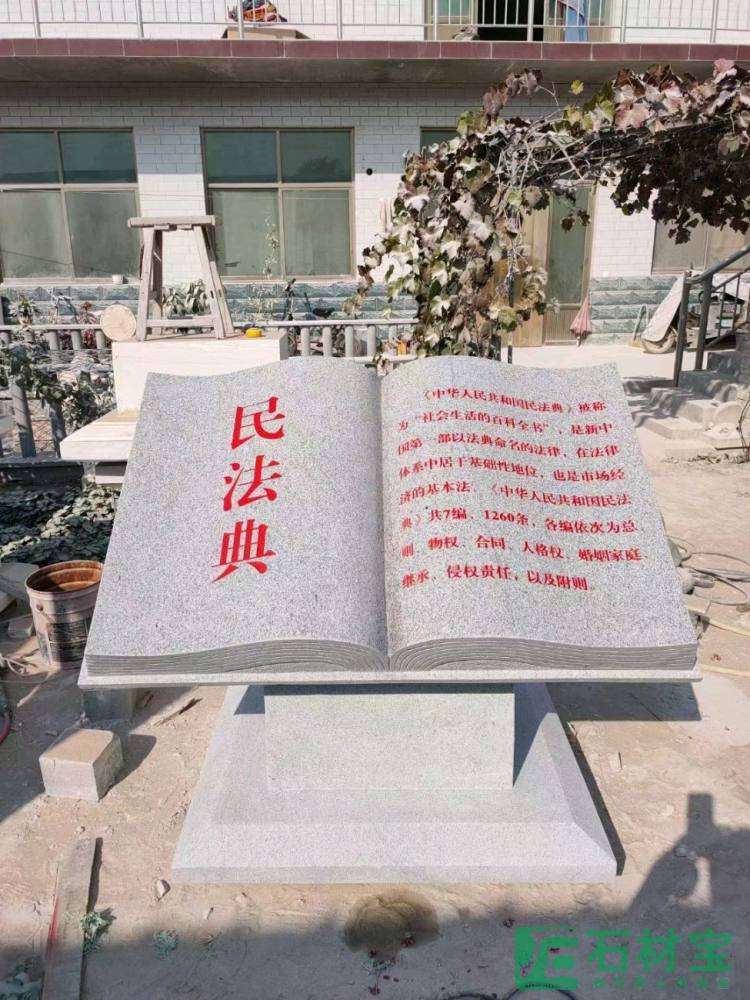 民法典
《中华人民共和国民法典》被称
为“社会生活的百科全书”，是新中
国第一部以法典命名的法律，在法律
体系中居于基础性地位，也是市场经
济的基本法、《中华人民共和国民法
典》共7编、1260条，各编依次为总
则、物权、合同、人格权、婚姻家庭、
继承，侵权责任，以及附则。
石材宝